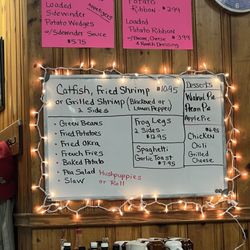 Loaded
Sidewinder
Potato Wedges
w/Sidewinder Sauce
$5.75
Potato
Ribbon $2.99
Loaded
Potato
Ribbon $3.99
w/Bacon, Cheese
& Ranch Dressing
Catfish, Fried Shrimp $10.95
or Grilled Shrimp (Blackened or
2 Sides Lemon Pepper)
• Green Beans
• Fried Potatoes
• Fried Okra
• French Fries
• Baked Potato
• Pea Salad
• Slaw
Hushpuppies
or Roll
Frog Legs
2 Sides-
$12.95
Spaghetti
Garlic Toast
$7.95
Desserts
Walnut Pie
Pecan Pie
Apple Pie
$6.95
Chicken
Chili
Grilled
Cheese